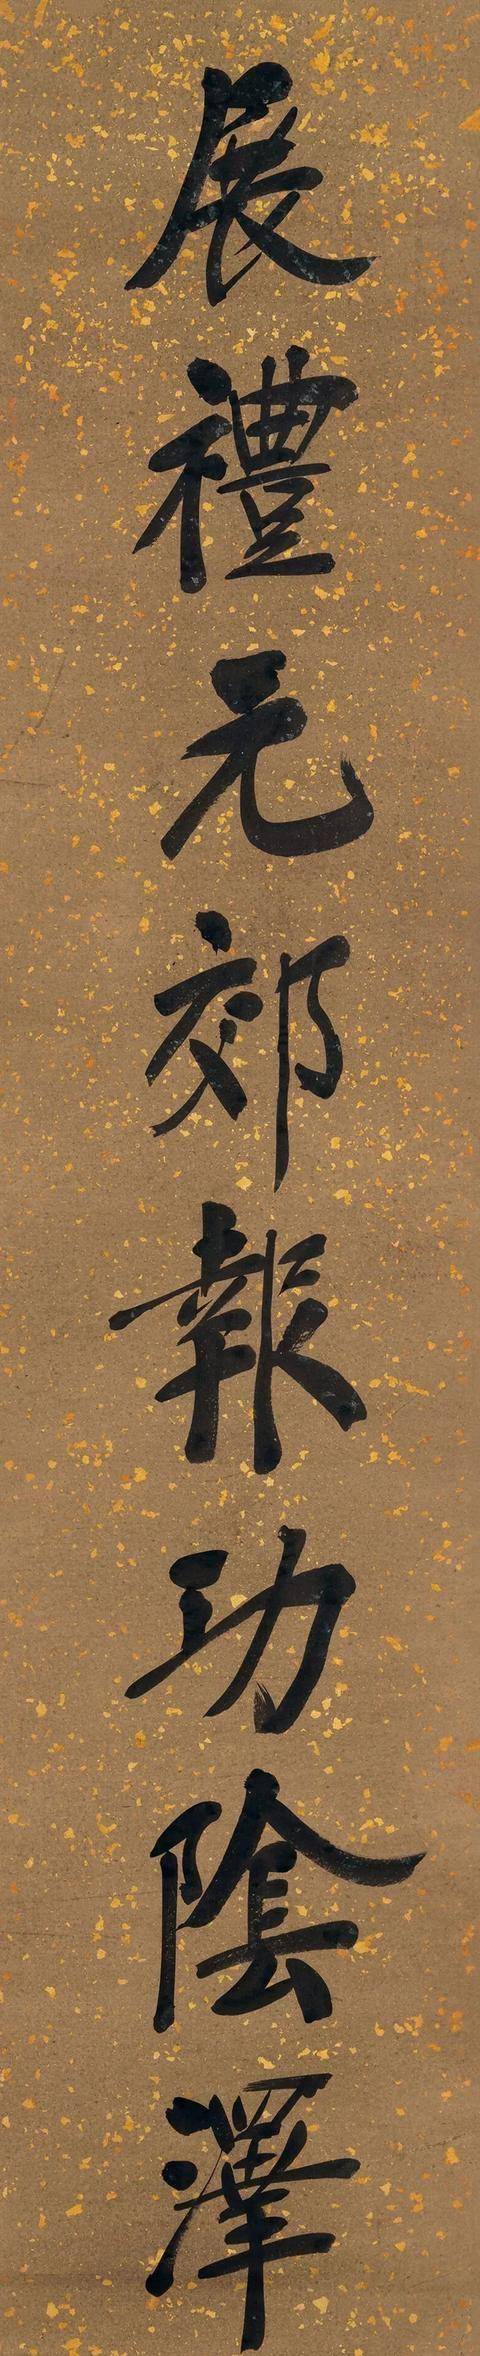 展禮元郊報功陰澤